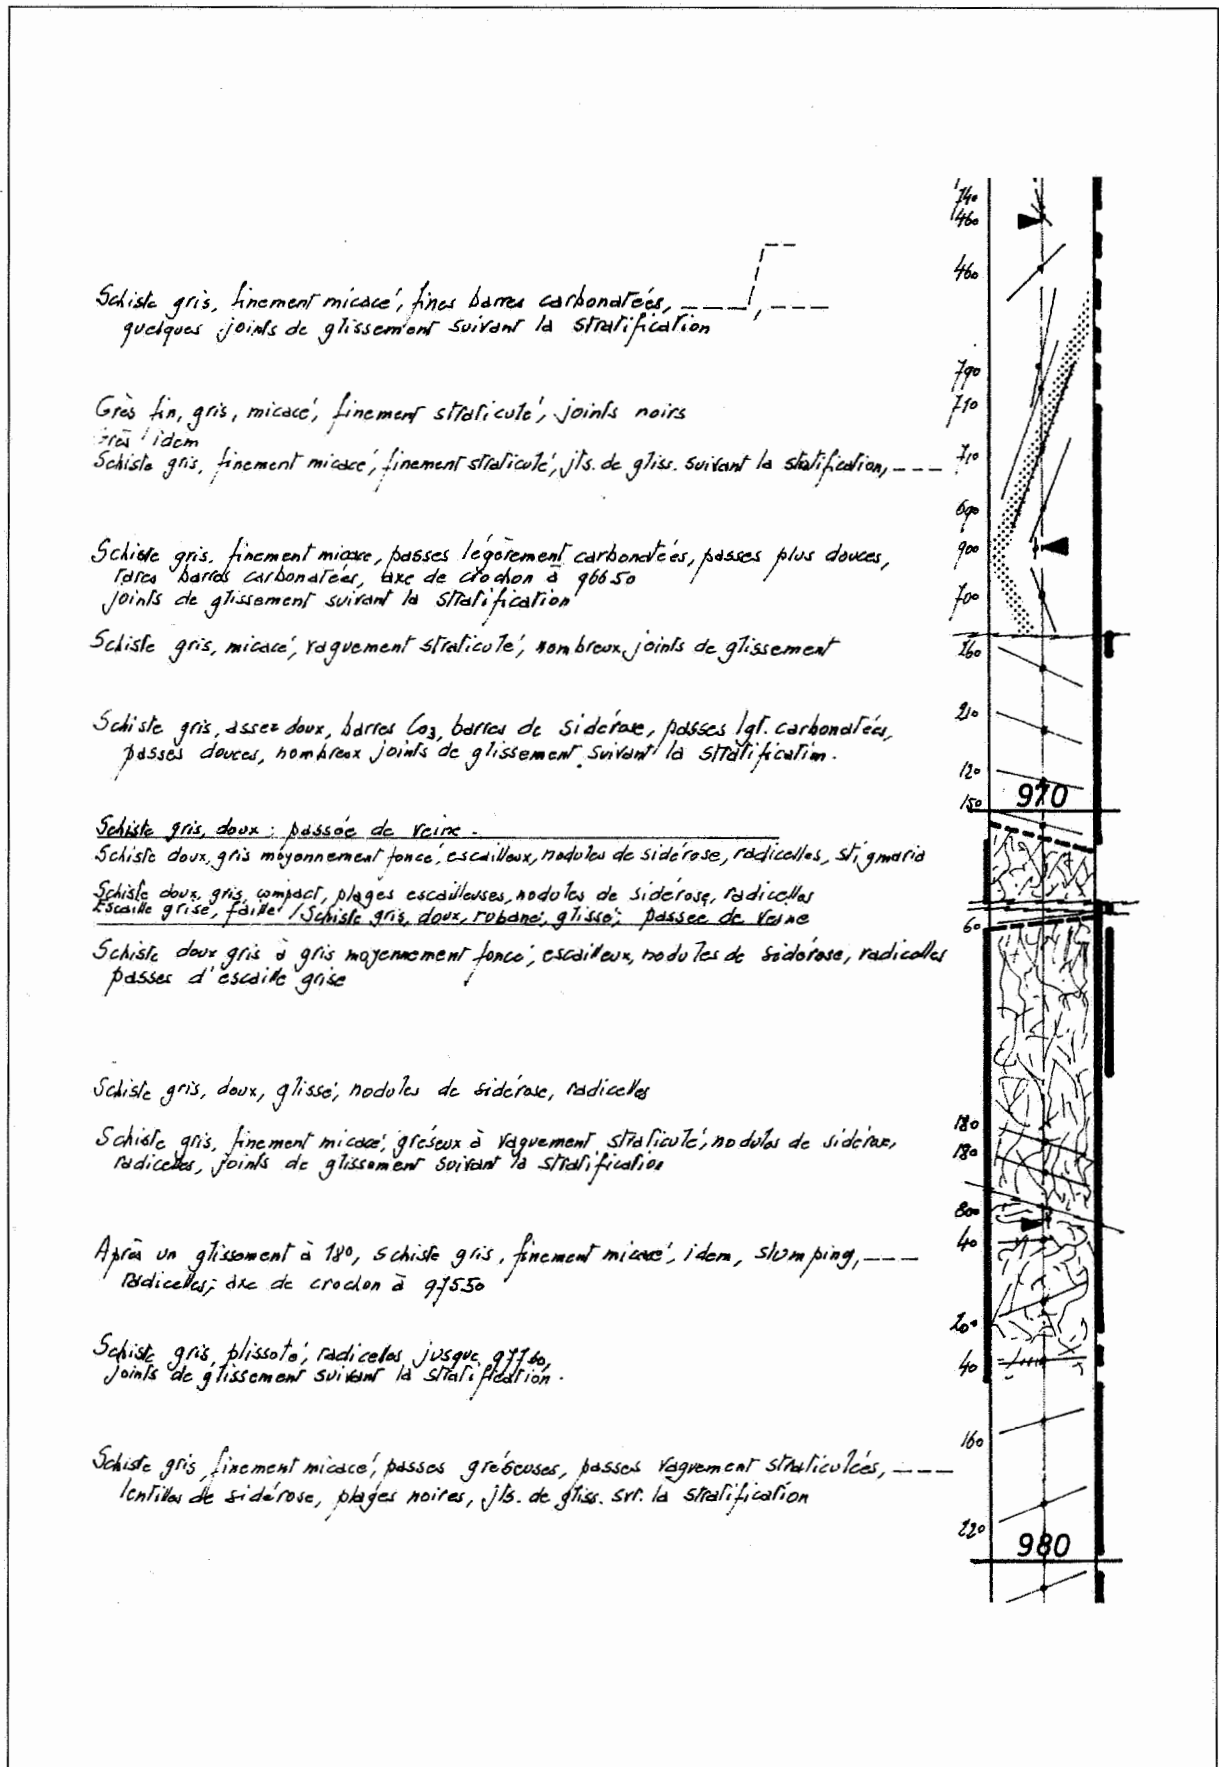 740
460
460
Schiste gris, finement micacé, fines barres carbonatées,
quelques joints de glissement suivant la stratification
790
Grès fin, gris, micacé, finement straticulé, joints noirs
710
Grès idem
Schiste gris, finement micacé, finement straticulé, jts. de gliss. suivant la statification,
710
690
Schiste gris, finement micacé, passes légèrement carbonatées, passes plus douces,
900
rares barres carbonatées, axe de crochon à 96650
joints de glissement suivant la stratification
700
Schiste gris, micacé, vaguement straticulé, nombreux joints de glissement
260
Schiste gris, assez doux, barres Co3, barres de sidérose, passes lgt. carbonatées,
210
passes douces, nombreux joints de glissement suivant la stratification.
120
150
970
Schiste gris, doux : passée de veine.
Schiste doux, gris moyennement foncé, escailleux, nodules de sidérose, radicelles, stigmaria
Schiste doux, gris, compact, plages escailleuses, nodules de sidérose, radicelles
Escaille grise, faille / Schiste gris, doux, rubané, glissé; passée de veine
60
Schiste doux gris à gris moyennement foncé, escailleux, nodules de sidérose, radicelles
passes d'escaille grise
Schiste gris, doux, glissé, nodules de sidérose, radicelles
180
Schiste gris, finement micacé, gréseux à vaguement straticulé, nodules de sidérose,
180
radicelles, joints de glissement suivant la stratification
800
40
Après un glissement à 180, schiste gris, finement micacé, idem, slumping,
radicelles; axe de crochon à 97550
200
Schiste gris, plissoté, radicelles jusque 97760,
40
joints de glissement suivant la stratification.
160
Schiste gris, finement micacé, passes gréseuses, passes vaguement straticulées,
lentilles de sidérose, plages noires, jts. de gliss. svt. la stratification
220
980